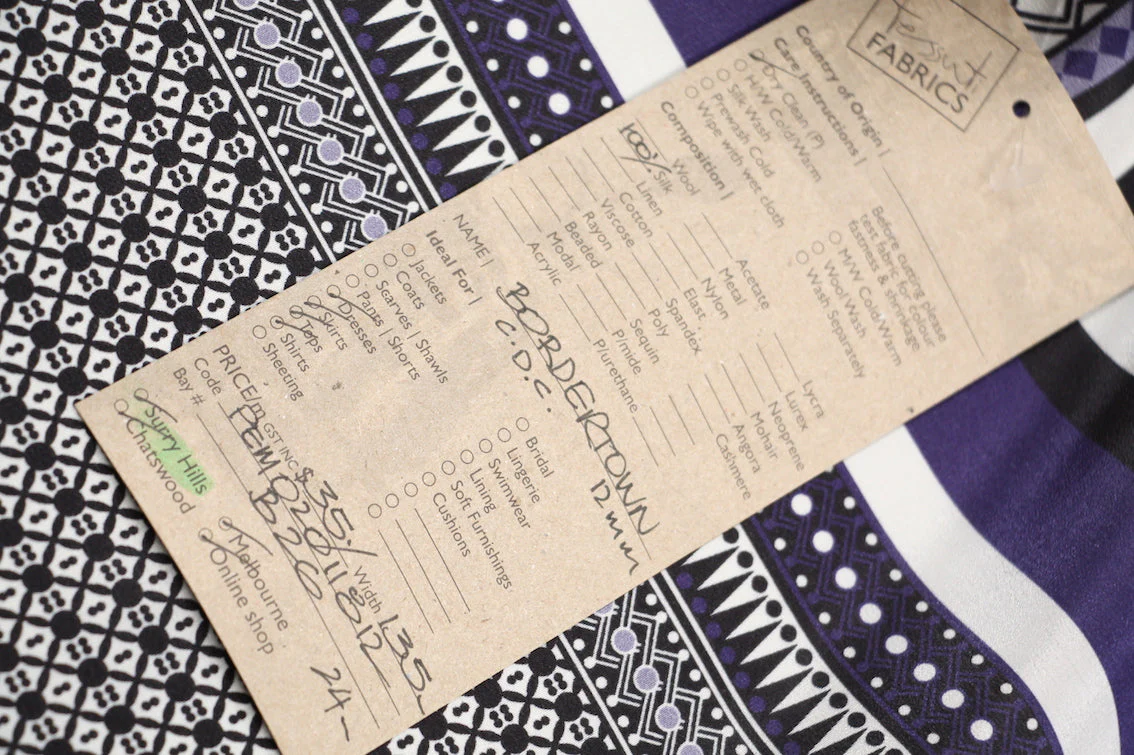 Tessuti
FABRICS
Country of Origin |
Care Instructions |
Dry Clean (P)
H/W Cold/Warm
Silk Wash
Prewash Cold
Wipe with wet cloth
Before cutting please
test fabric for colour
fastness & shrinkage
M/W Cold/Warm
Wool Wash
Wash Separately
Composition |
Wool
100% Silk
Linen
Cotton
Viscose
Rayon
Beaded
Modal
Acrylic
Acetate
Metal
Nylon
Elast.
Spandex
Poly
Sequin
P/mide
P/urethane
Lycra
Lurex
Neoprene
Mohair
Angora
Cashmere
NAME | BORDERTOWN
C.D.C. 12mm
Ideal For |
Jackets
Coats
Scarves | Shawls
Pants | Shorts
Dresses
Skirts
Tops
Shirts
Sheeting
Bridal
Lingerie
Swimwear
Lining
Soft Furnishings
Cushions
PRICE/m GST INC $35/ Width 135
Code
Bay # B26
24-
Surry Hills
Chatswood
Melbourne
Online shop